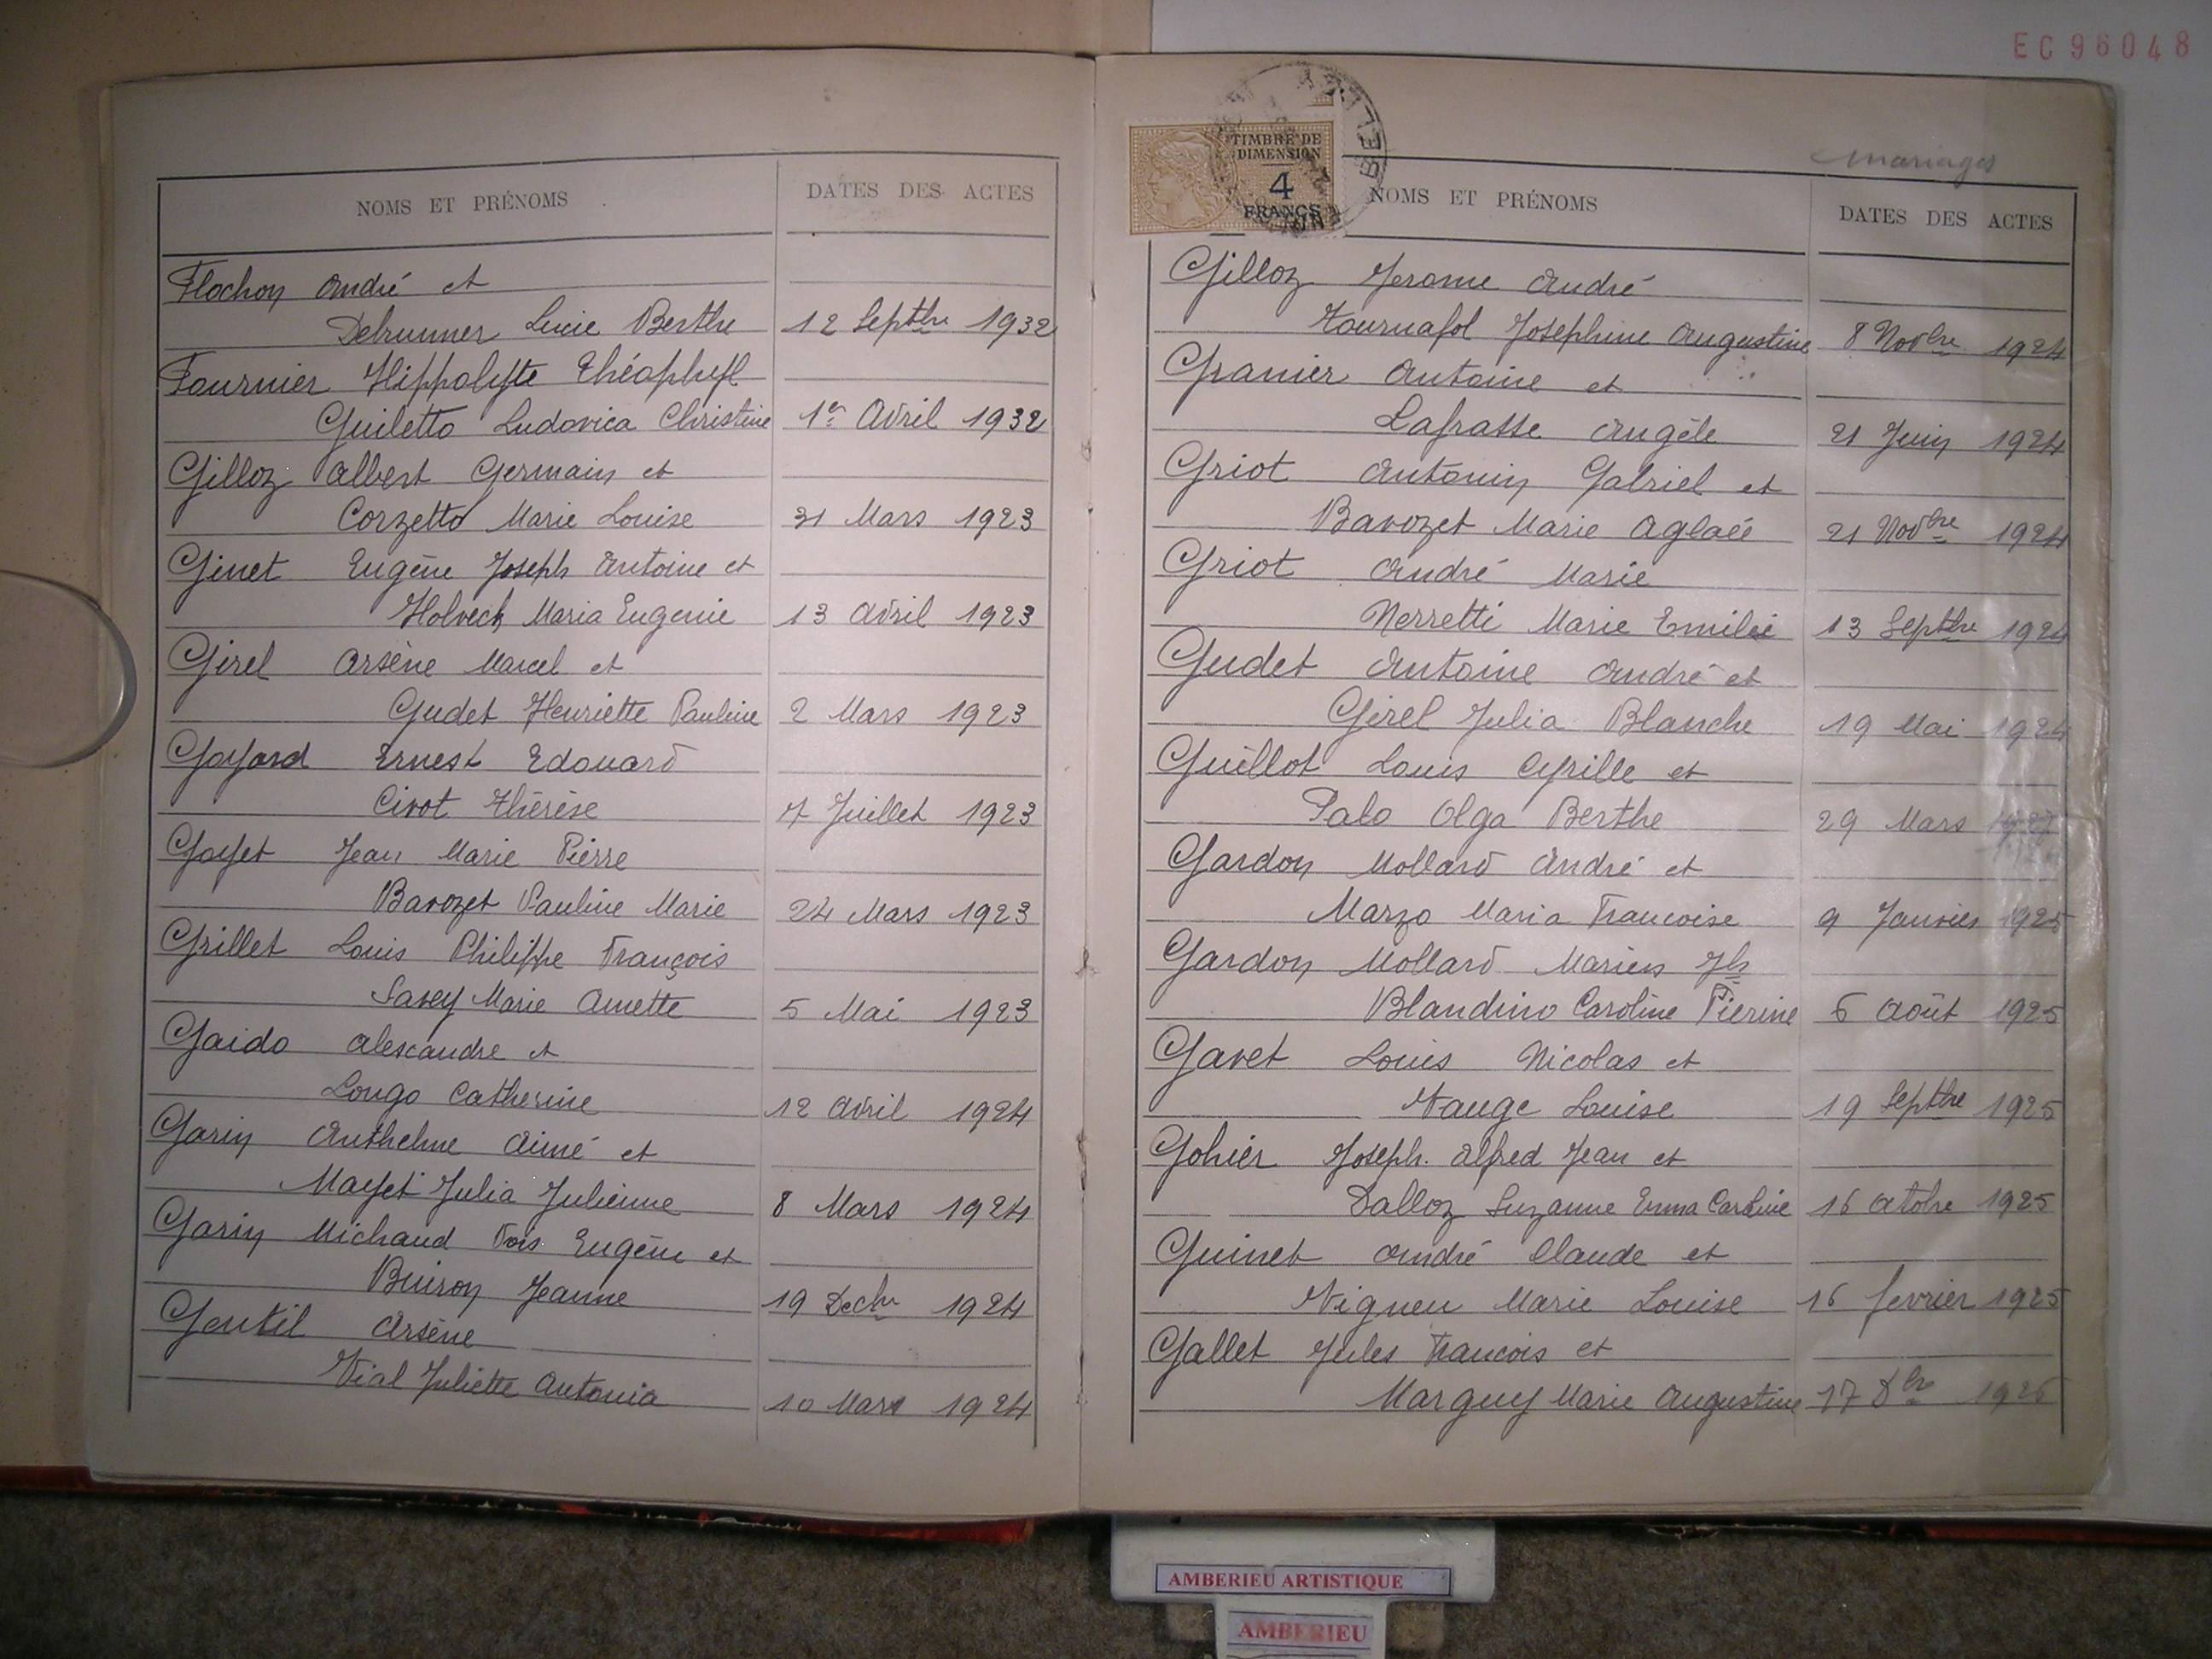 EC96048
NOMS ET PRÉNOMS
DATES DES ACTES
Flochon André et
Debrunner Lucie Berthe 12 Septbre 1932
Fournier Hippolyte Théophyl
Guiletto Ludovica Christine 1er Avril 1932
Gilloz Albert Germain et
Corzetto Marie Louise 31 Mars 1923
Ginet Eugène Joseph Antoine et
Holveck Maria Eugenie 13 Avril 1923
Girel Arsène Marcel et
Gudet Henriette Pauline 2 Mars 1923
Goyard Ernest Edouard
Civot Thérèse 7 Juillet 1923
Goyet Jean Marie Pierre
Bavozet Pauline Marie 24 Mars 1923
Grillet Louis Philippe François
Savey Marie Anette 5 Mai 1923
Gaido Alexandre et
Longo Catherine 12 Avril 1924
Garin Anthelme Aimé et
Mayet Julia Julienne 8 Mars 1924
Garin Michaud Fois Eugène et
Buiron Jeanne 19 Decbre 1924
Gentil Arsène
Vial Juliette Antonia 10 Mars 1924
TIMBRE DE
DIMENSION
4
FRANCS
Mariages
NOMS ET PRÉNOMS
DATES DES ACTES
Gilloz Jerome André
Tournafol Josephine Augustine 8 Novbre 1924
Granier Antoine et
Lafrasse Angèle 21 Juin 1924
Griot Antonin Gabriel et
Bavozet Marie Aglaëe 21 Novbre 1924
Griot André Marie
Nerretti Marie Emilie 13 Septbre 1924
Gudet Antoine André et
Girel Julia Blanche 19 Mai 1924
Guillot Louis Cyrille et
Palo Olga Berthe 29 Mars
Gardon Mollard André et
Marzo Maria Francoise 9 Janvier 1925
Gardon Mollard Marius Jh
Blandino Caroline Pierine 6 Août 1925
Gavet Louis Nicolas et
Vauge Louise 19 Septbre 1925
Gohier Joseph. Alfred Jean et
Dalloz Suzanne Emma Caroline 16 Octobre 1925
Guinet André Claude et
Vigneu Marie Louise 16 fevrier 1925
Gallet Jules Francois et
Marguy Marie Augustine 17 Dbre 1926
AMBERIEU ARTISTIQUE
AMBERIEU